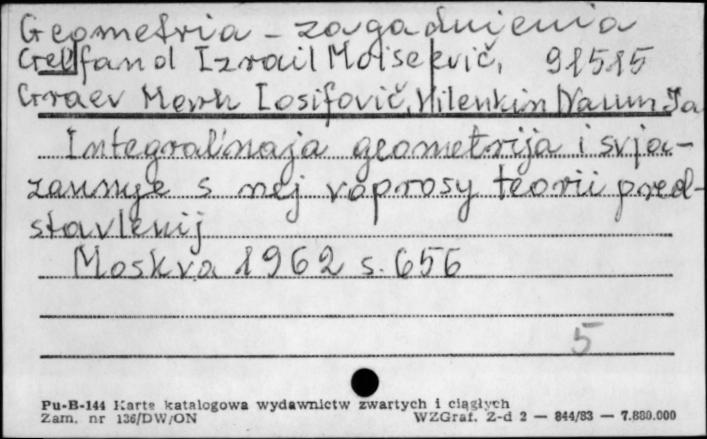 Geometria - zagadnienia
Gelfand Izrail Moisejevič, 91515
Graev Mark Iosifovič, Vilenkin Naum Ja
Integral'naja geometrija i svja-
zannye s nej voprosy teorii pred-
stavlenij
Moskva 1962 s. 656
5
Pu-B-144 Karta katalogowa wydawnictw zwartych i ciągłych
Zam. nr 136/DW/ON WZGraf. Z-d 2 — 844/83 — 7.880.000